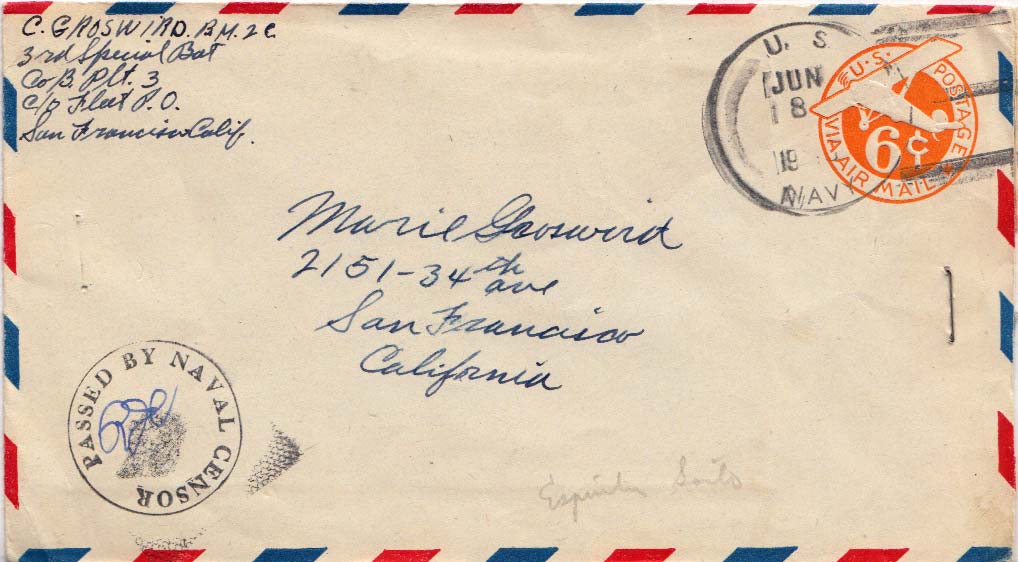 C. GROSWIRD. B.M. 2C
3rd Special Bat
Co B. Plt. 3
c/o Fleet P.O.
San Francisco Calif.
U. S.
JUN
18
19
NAVY
U.S. POSTAGE
6¢
VIA AIR MAIL
Marie Groswird
2151-34th ave
San Francisco
California
PASSED BY NAVAL CENSOR
Santo